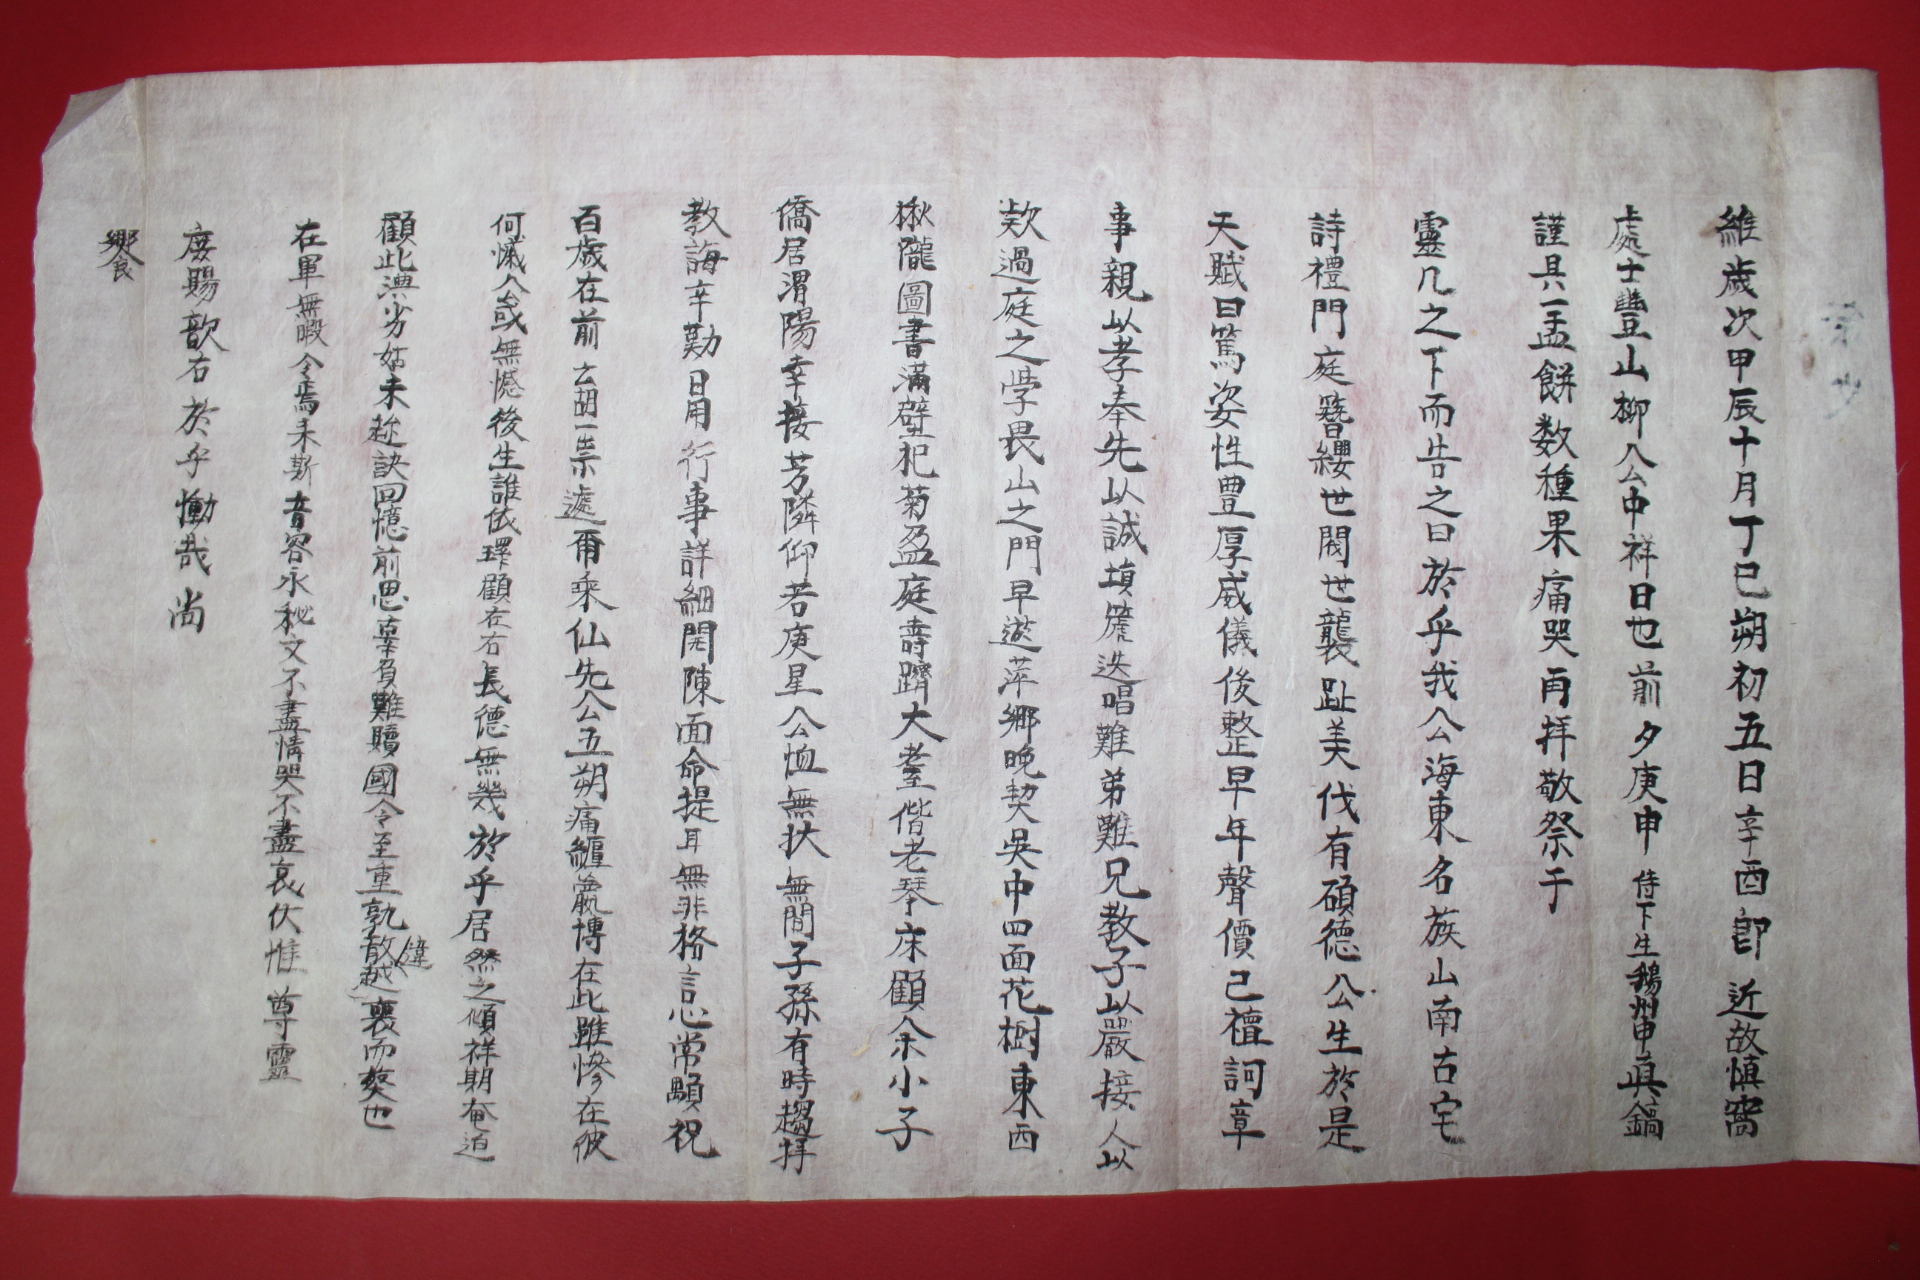 維歲次甲辰十月丁巳朔初五日辛酉卽近故愼窩
處士豐山柳公中祥日也前夕庚申侍下生鵝州申眞鎬
謹具一盂餠数種果痛哭再拜敬祭于
靈几之下而告之曰於乎我公海東名族山南古宅
詩禮門庭簪纓世閥世襲趾美代有碩德公生於是
天賦曰篤姿性豊厚威儀俊整早年聲價已擅詞章
事親以孝奉先以誠塤篪迭唱難弟難兄教子以嚴接人以
欵過庭之學畏山之門早遊萍鄉晩契吳中四面花樹東西
楸隴圖書滿壁杞菊盈庭壽躋大耋偕老琴床顧余小子
僑居渭陽幸接芳隣仰若庚星公恤無扶無間子孫有時趨拜
教誨辛勤日用行事詳細開陳面命提耳無非格言心常願祝
百歲在前云胡一祟遽爾乘仙先公五朔痛纏嬴博在此雖慘在彼
何慽人或無憾後生誰依環顧在右長德無幾於乎居然之傾祥期奄迫
顧此淟劣姑未趁訣回憶前思辜負難贖國令至重孰敢越違襄而葬也
在軍無暇今焉未斯音容永秘文不盡情哭不盡哀伏惟尊靈
庶賜歆右於乎慟哉尚
饗